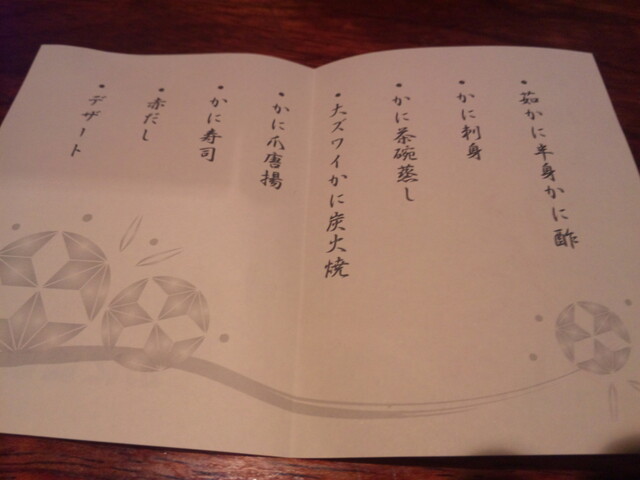 ・茹かに半身かに酢
・かに刺身
・かに茶碗蒸し
・大ズワイかに炭火焼
・かに爪唐揚
・かに寿司
・赤だし
・デザート